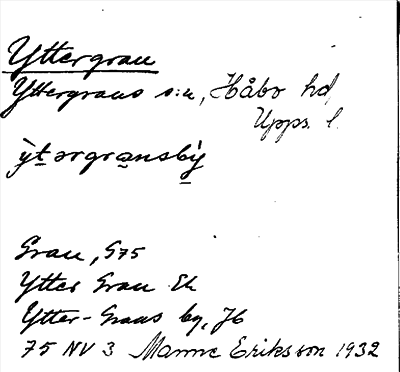 Yttergran
Yttergrans s:n, Håbo hd,
Upps. l.
ỳt̲ərgra̲nsbý̲
Gran, G75
Ytter Gran Ek
Ytter-Grans by, Jb
75 NV 3 Manne Eriksson 1932